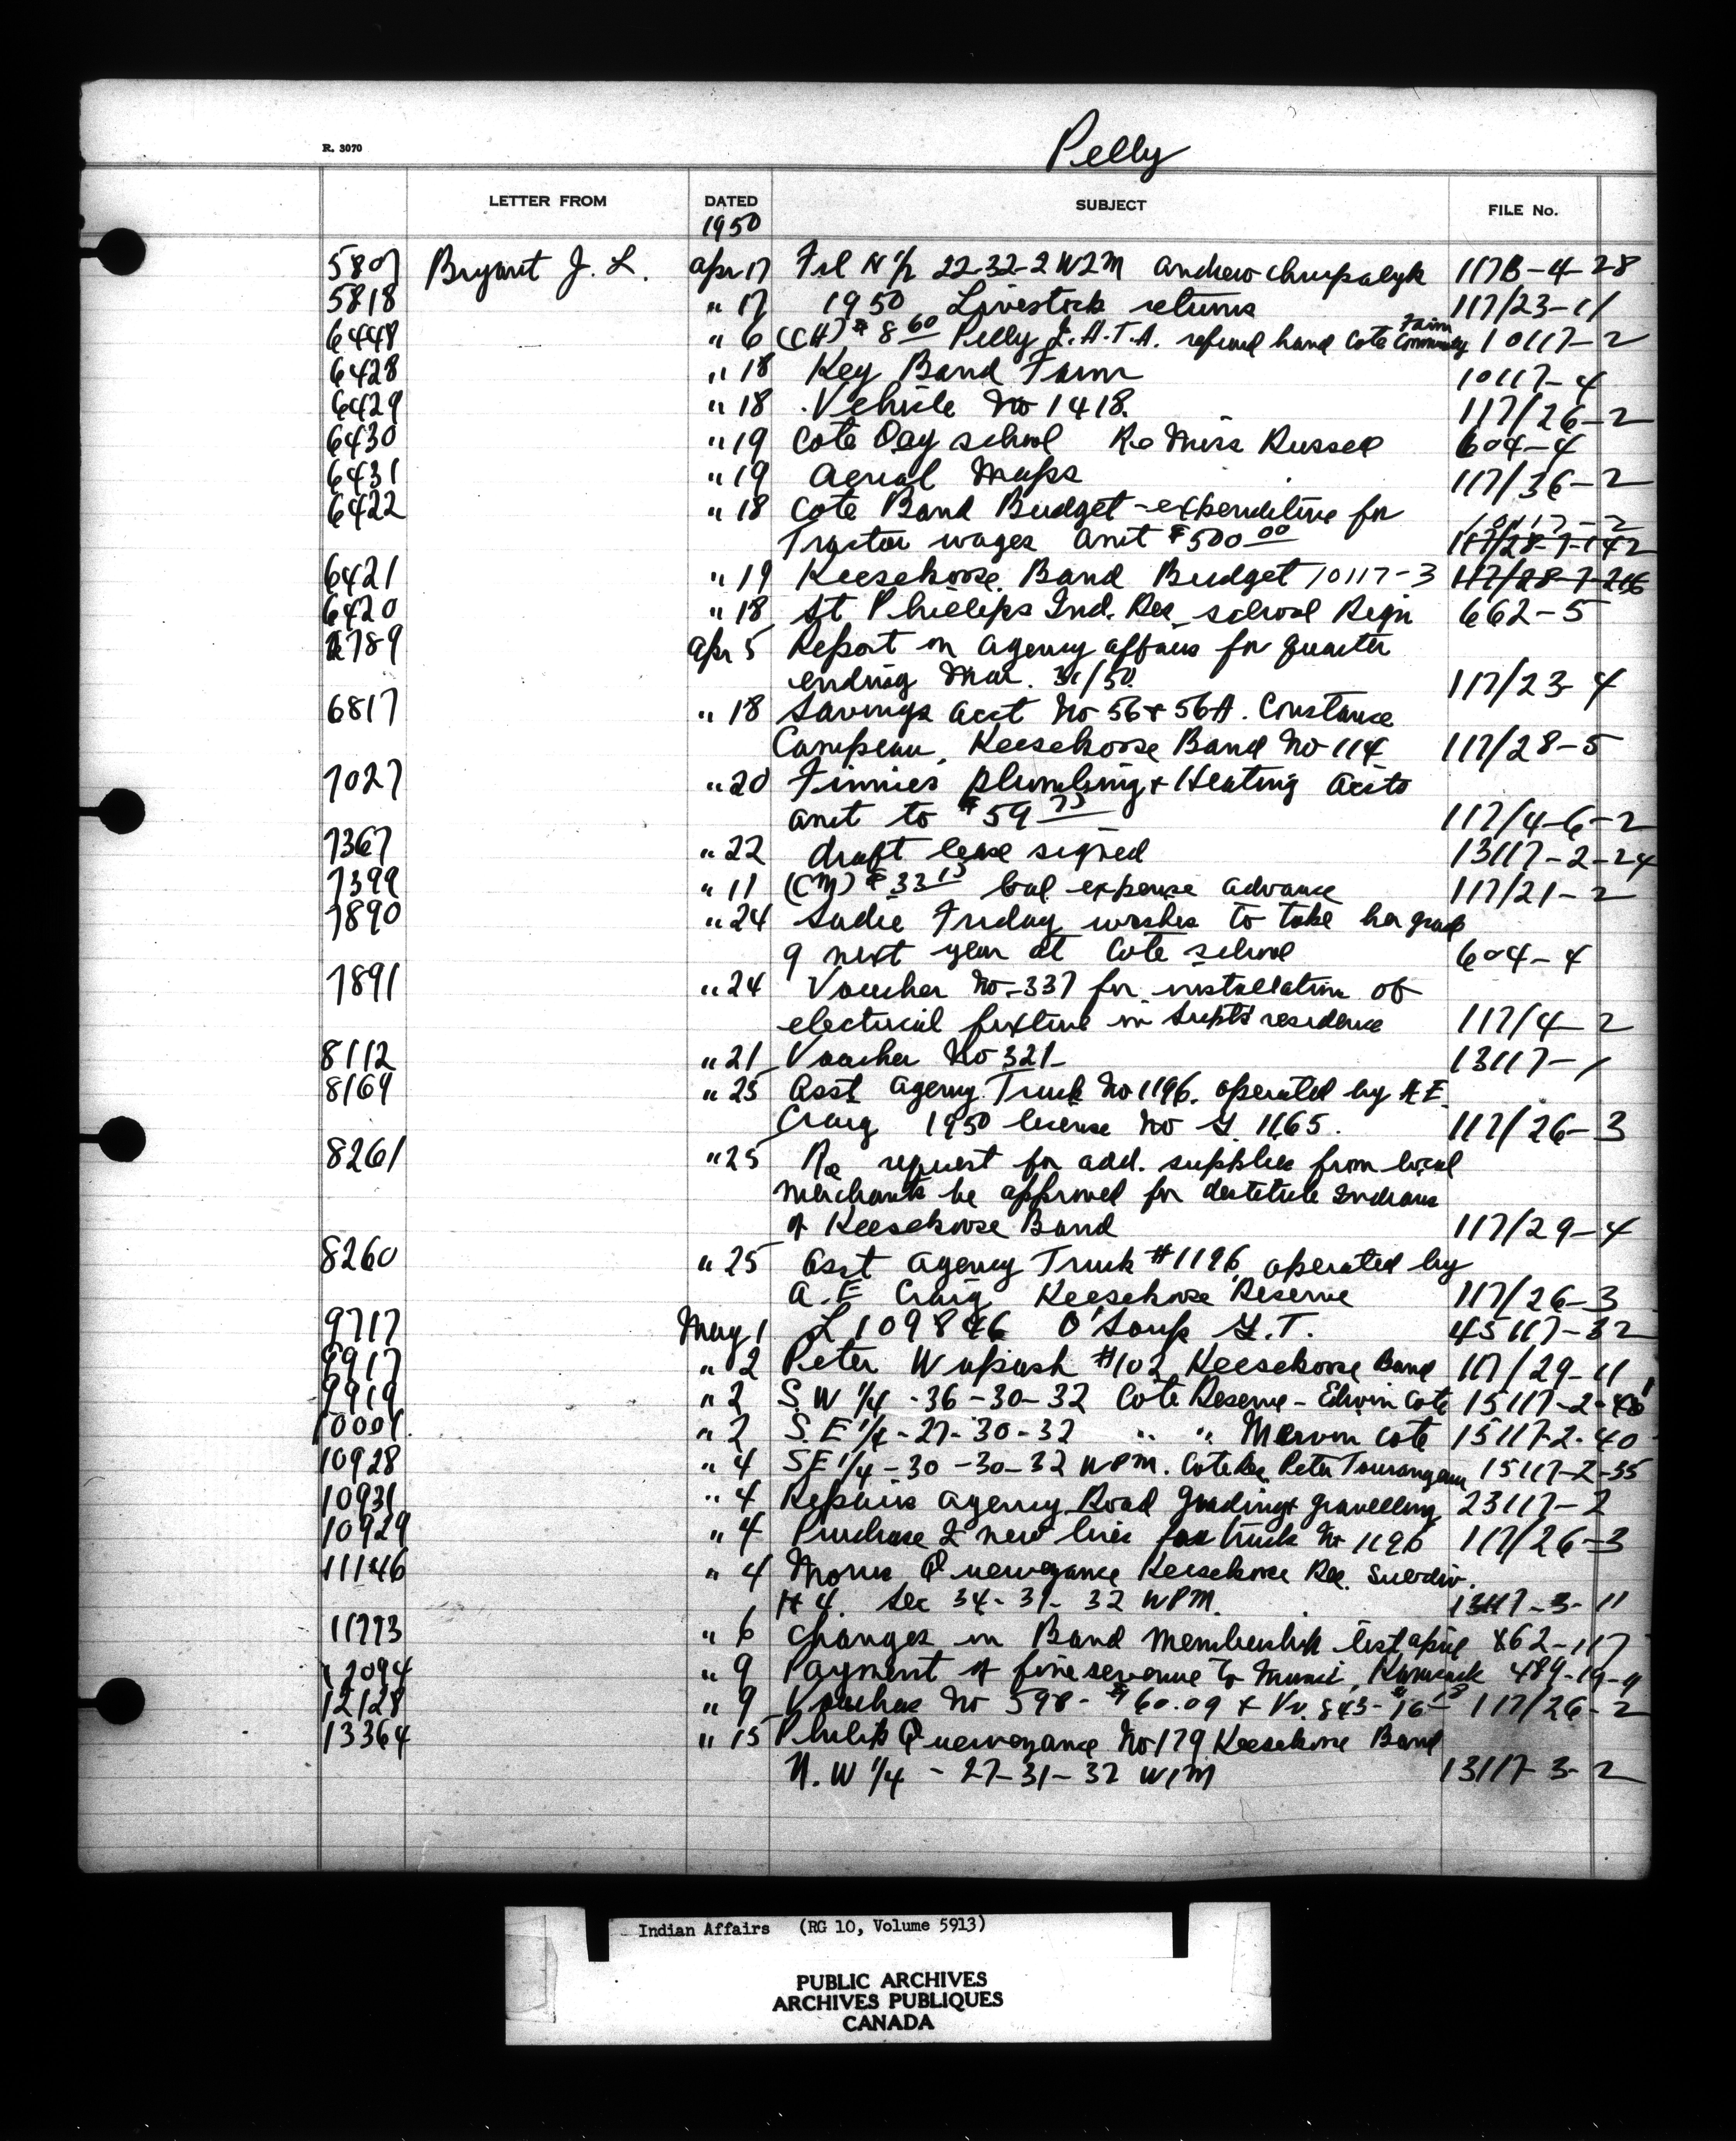 R. 3070
Pelly
LETTER FROM DATED SUBJECT FILE No.
1950
5807 Bryant J. L. Apr 17 Frl N ½ 22-32-2 W2M Andrew 117B-4-28
5818 " 17 1950 Livestock returns 117/23-11
6448 " 6 (CH) $8 60 Pelly I.A.T.A. refund hand Cote Farm Community 10117-2
6428 " 18 Key Band Farm 10117-4
6429 " 18 Vehicle No 1418. 117/26-2
6430 " 19 Cote Day school Re Miss Russell 604-4
6431 " 19 Aerial Maps 117/36-2
6422 " 18 Cote Band Budget - expenditure for
10117-2
Tractor wages amt $500 00 117/28-7-142
6421 " 19 Keesekoose Band Budget 10117-3 117/28-7-
6420 " 18 St Phillips Ind. Res. school Regn 662-5
789 Apr 5 Report on agency affairs for quarter
ending Mar. 31/50 117/23-4
6817 " 18 Savings acct No 56 & 56A. Constance
Campeau, Keesekoose Band No 114 117/28-5
7027 " 20 Finnies plumbing & Heating Accts
amt to $59 75 117/4-6-2
7367 " 22 draft lease signed 13117-2-24
7399 " 11 (CM) $33 15 bal expense advance 117/21-2
7890 " 24 Sadie Friday wishes to take her grade
9 next year at Cote school 604-4
7891 " 24 Voucher No-337 for installation of
electrical fixture in Supt's residence 117/4-2
8112 " 21 Voucher No 321- 13117-1
8169 " 25 Asst Agency Truck No 1196. operated by A E
Craig 1950 license No G. 1165. 117/26-3
8261 " 25 Re request for add. supplies from local
merchants be approved for destitute Indians
of Keesekoose Band 117/29-4
8260 " 25 Asst Agency Truck #1196 operated by
A. E Craig Keesekoose Reserve 117/26-3
9717 May 1 L 109846 O'Soup G.T. 45117-32
9917 " 2 Peter Wapash #102 Keesekoose Band 117/29-11
9919 " 2 S. W ¼ -36-30-32 Cote Reserve - Edwin Cote 15117-2-
10001 " 2 S. E ¼ - 27-30-32 " " Mervin Cote 15117-2-40
10928 " 4 SE ¼ -30-30-32 WPM. Cote Res Peter Tourangeau 15117-2-35
10931 " 4 Repairs agency Road Grading & gravelling 23117-2
10929 " 4 Purchase 2 new tires for truck No 1196 117/26-3
11146 " 4 Quewezance Keesekoose Res. Subdiv.
# 4. Sec 34-31-32 WPM. 13117-3-11
11773 " 6 Changes in Band membership list April 862-117
12094 " 9 Payment of fine revenue to Munic. Kamsack 489-19-9
12128 " 9 Voucher No 598- $60.09 & Vr. 843- 117/26-2
13364 " 15 Philip Quewezance No 179 Keesekoose Band
N. W ¼ - 27-31-32 W1M 13117-3-2
Indian Affairs (RG 10, Volume 5913)
PUBLIC ARCHIVES
ARCHIVES PUBLIQUES
CANADA